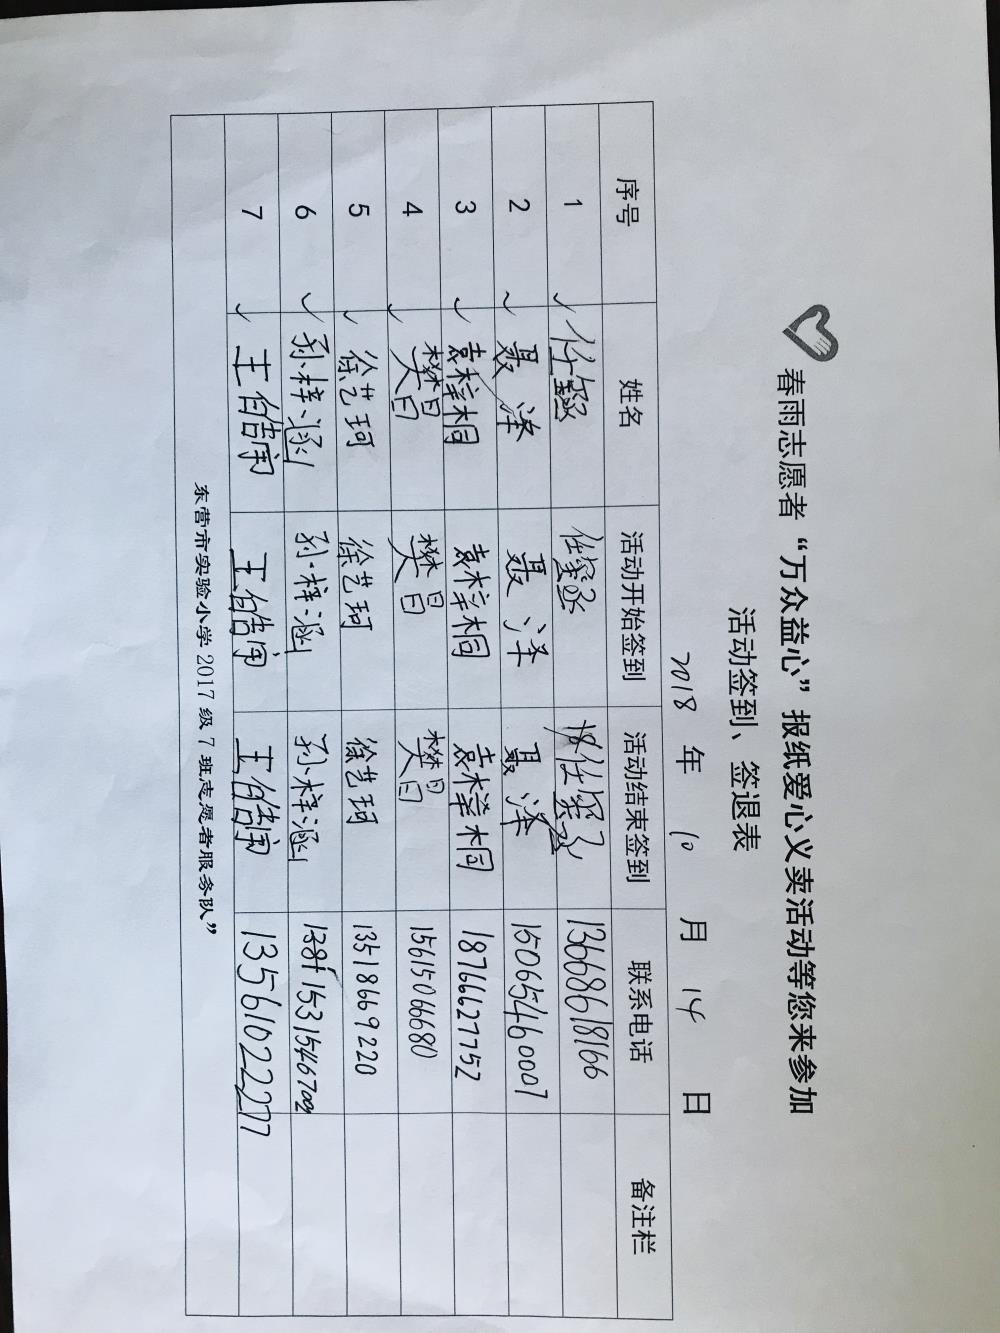 春雨志愿者“万众益心”报纸爱心义卖活动等您来参加
活动签到、签退表
2018 年 10 月 14 日
序号 姓名 活动开始签到 活动结束签到 联系电话 备注栏
1 任 任 任 13668618166
2 聂泽 聂泽 聂泽 15065460007
3 袁梓桐 袁梓桐 袁梓桐 18766627752
4 樊昊 樊昊 樊昊 15615066680
5 徐艺珂 徐艺珂 徐艺珂 13518669220
6 孙梓涵 孙梓涵 孙梓涵 15315467009
7 王皓宇 王皓宇 王皓宇 13561022277
东营市实验小学 2017 级 7 班志愿者服务队”